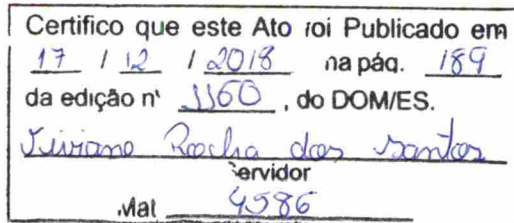 Certifico que este Ato roi Publicado em
17 / 12 / 2018 na páq. 189
da edição n' 1160 , do DOM/ES.
Viviane Rocha dos Santos
Servidor
Mat 4586